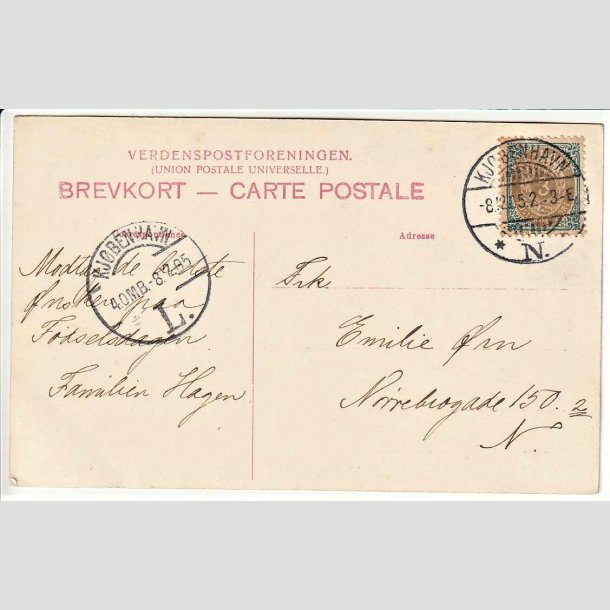 VERDENSPOSTFORENINGEN.
(UNION POSTALE UNIVERSELLE.)
BREVKORT — CARTE POSTALE
Correspondance
Adresse
KJØBENHAVN
-8.2.05.2-3.E
* N.
3
KJØBENHAVN
4.OMB.-8.2.05
L.
Modtag de bedste
Ønsker paa
Fødselsdagen
Familien Hagen
Frk.
Emilie Ørn
Nørrebrogade 150. 2
N.